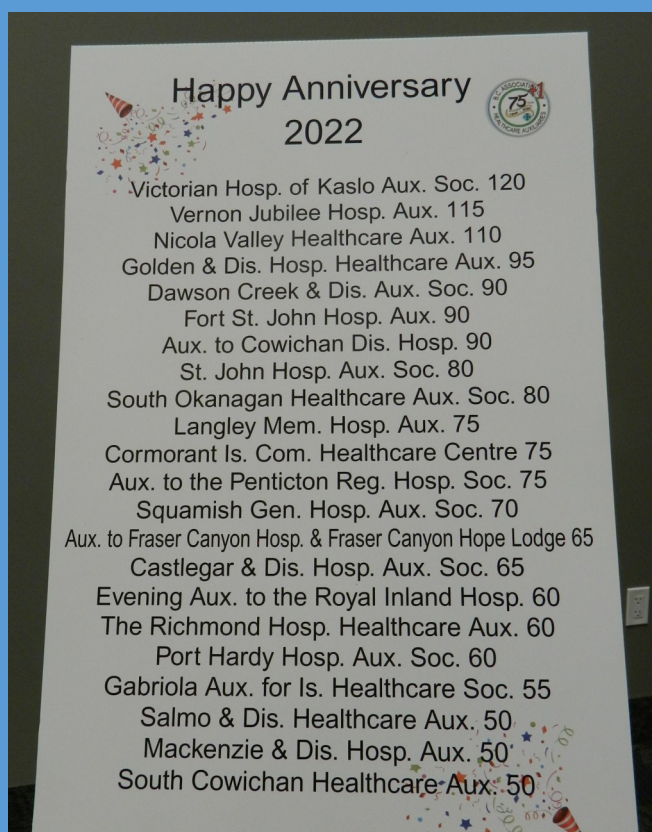 Happy Anniversary
2022
B.C. ASSOCIATION
75 +1
HEALTHCARE AUXILIARIES
Victorian Hosp. of Kaslo Aux. Soc. 120
Vernon Jubilee Hosp. Aux. 115
Nicola Valley Healthcare Aux. 110
Golden & Dis. Hosp. Healthcare Aux. 95
Dawson Creek & Dis. Aux. Soc. 90
Fort St. John Hosp. Aux. 90
Aux. to Cowichan Dis. Hosp. 90
St. John Hosp. Aux. Soc. 80
South Okanagan Healthcare Aux. Soc. 80
Langley Mem. Hosp. Aux. 75
Cormorant Is. Com. Healthcare Centre 75
Aux. to the Penticton Reg. Hosp. Soc. 75
Squamish Gen. Hosp. Aux. Soc. 70
Aux. to Fraser Canyon Hosp. & Fraser Canyon Hope Lodge 65
Castlegar & Dis. Hosp. Aux. Soc. 65
Evening Aux. to the Royal Inland Hosp. 60
The Richmond Hosp. Healthcare Aux. 60
Port Hardy Hosp. Aux. Soc. 60
Gabriola Aux. for Is. Healthcare Soc. 55
Salmo & Dis. Healthcare Aux. 50
Mackenzie & Dis. Hosp. Aux. 50
South Cowichan Healthcare Aux. 50